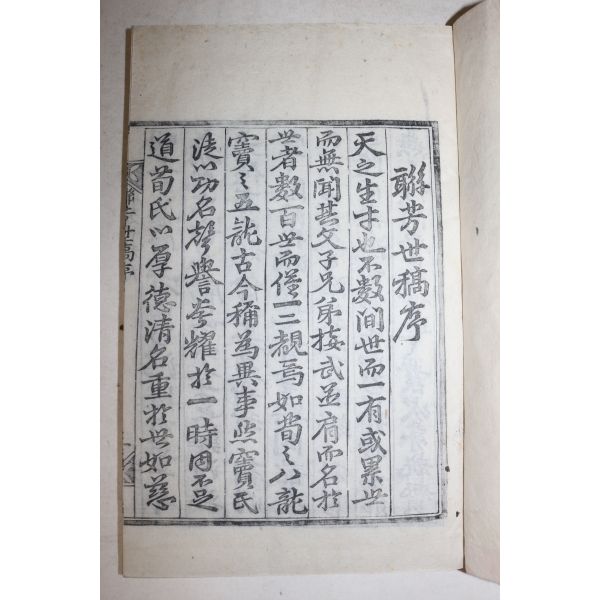 聯芳世稿序
天之生才也不數間世而一有或累世
而無聞其父子兄弟接武並肩而名於
世者數百世而僅一二覯焉如荀之八龍
竇之五龍古今稱為異事然竇氏
徒以功名聲譽夸耀於一時固不足
道荀氏以厚德清名重於世如慈
世稿序